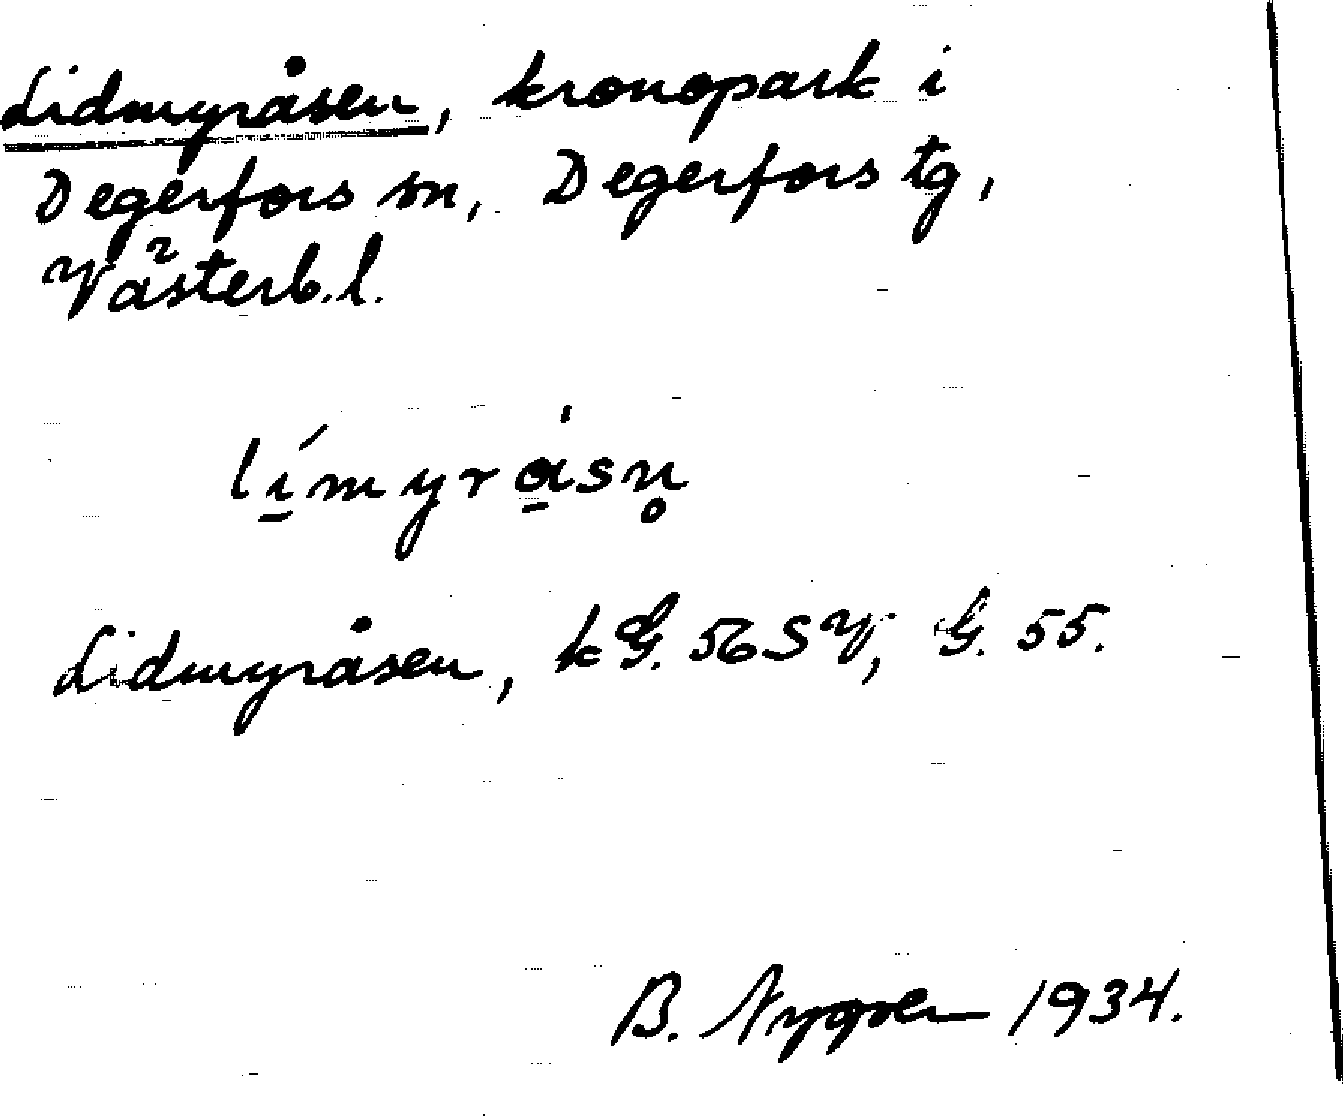 Lidmyråsen, kronopark i
Degerfors sn, Degerfors tg,
Västerb.l.
lí̱myrå̱sn̥
Lidmyråsen, kG. 56 SV, G. 55.
B. Nygren 1934.